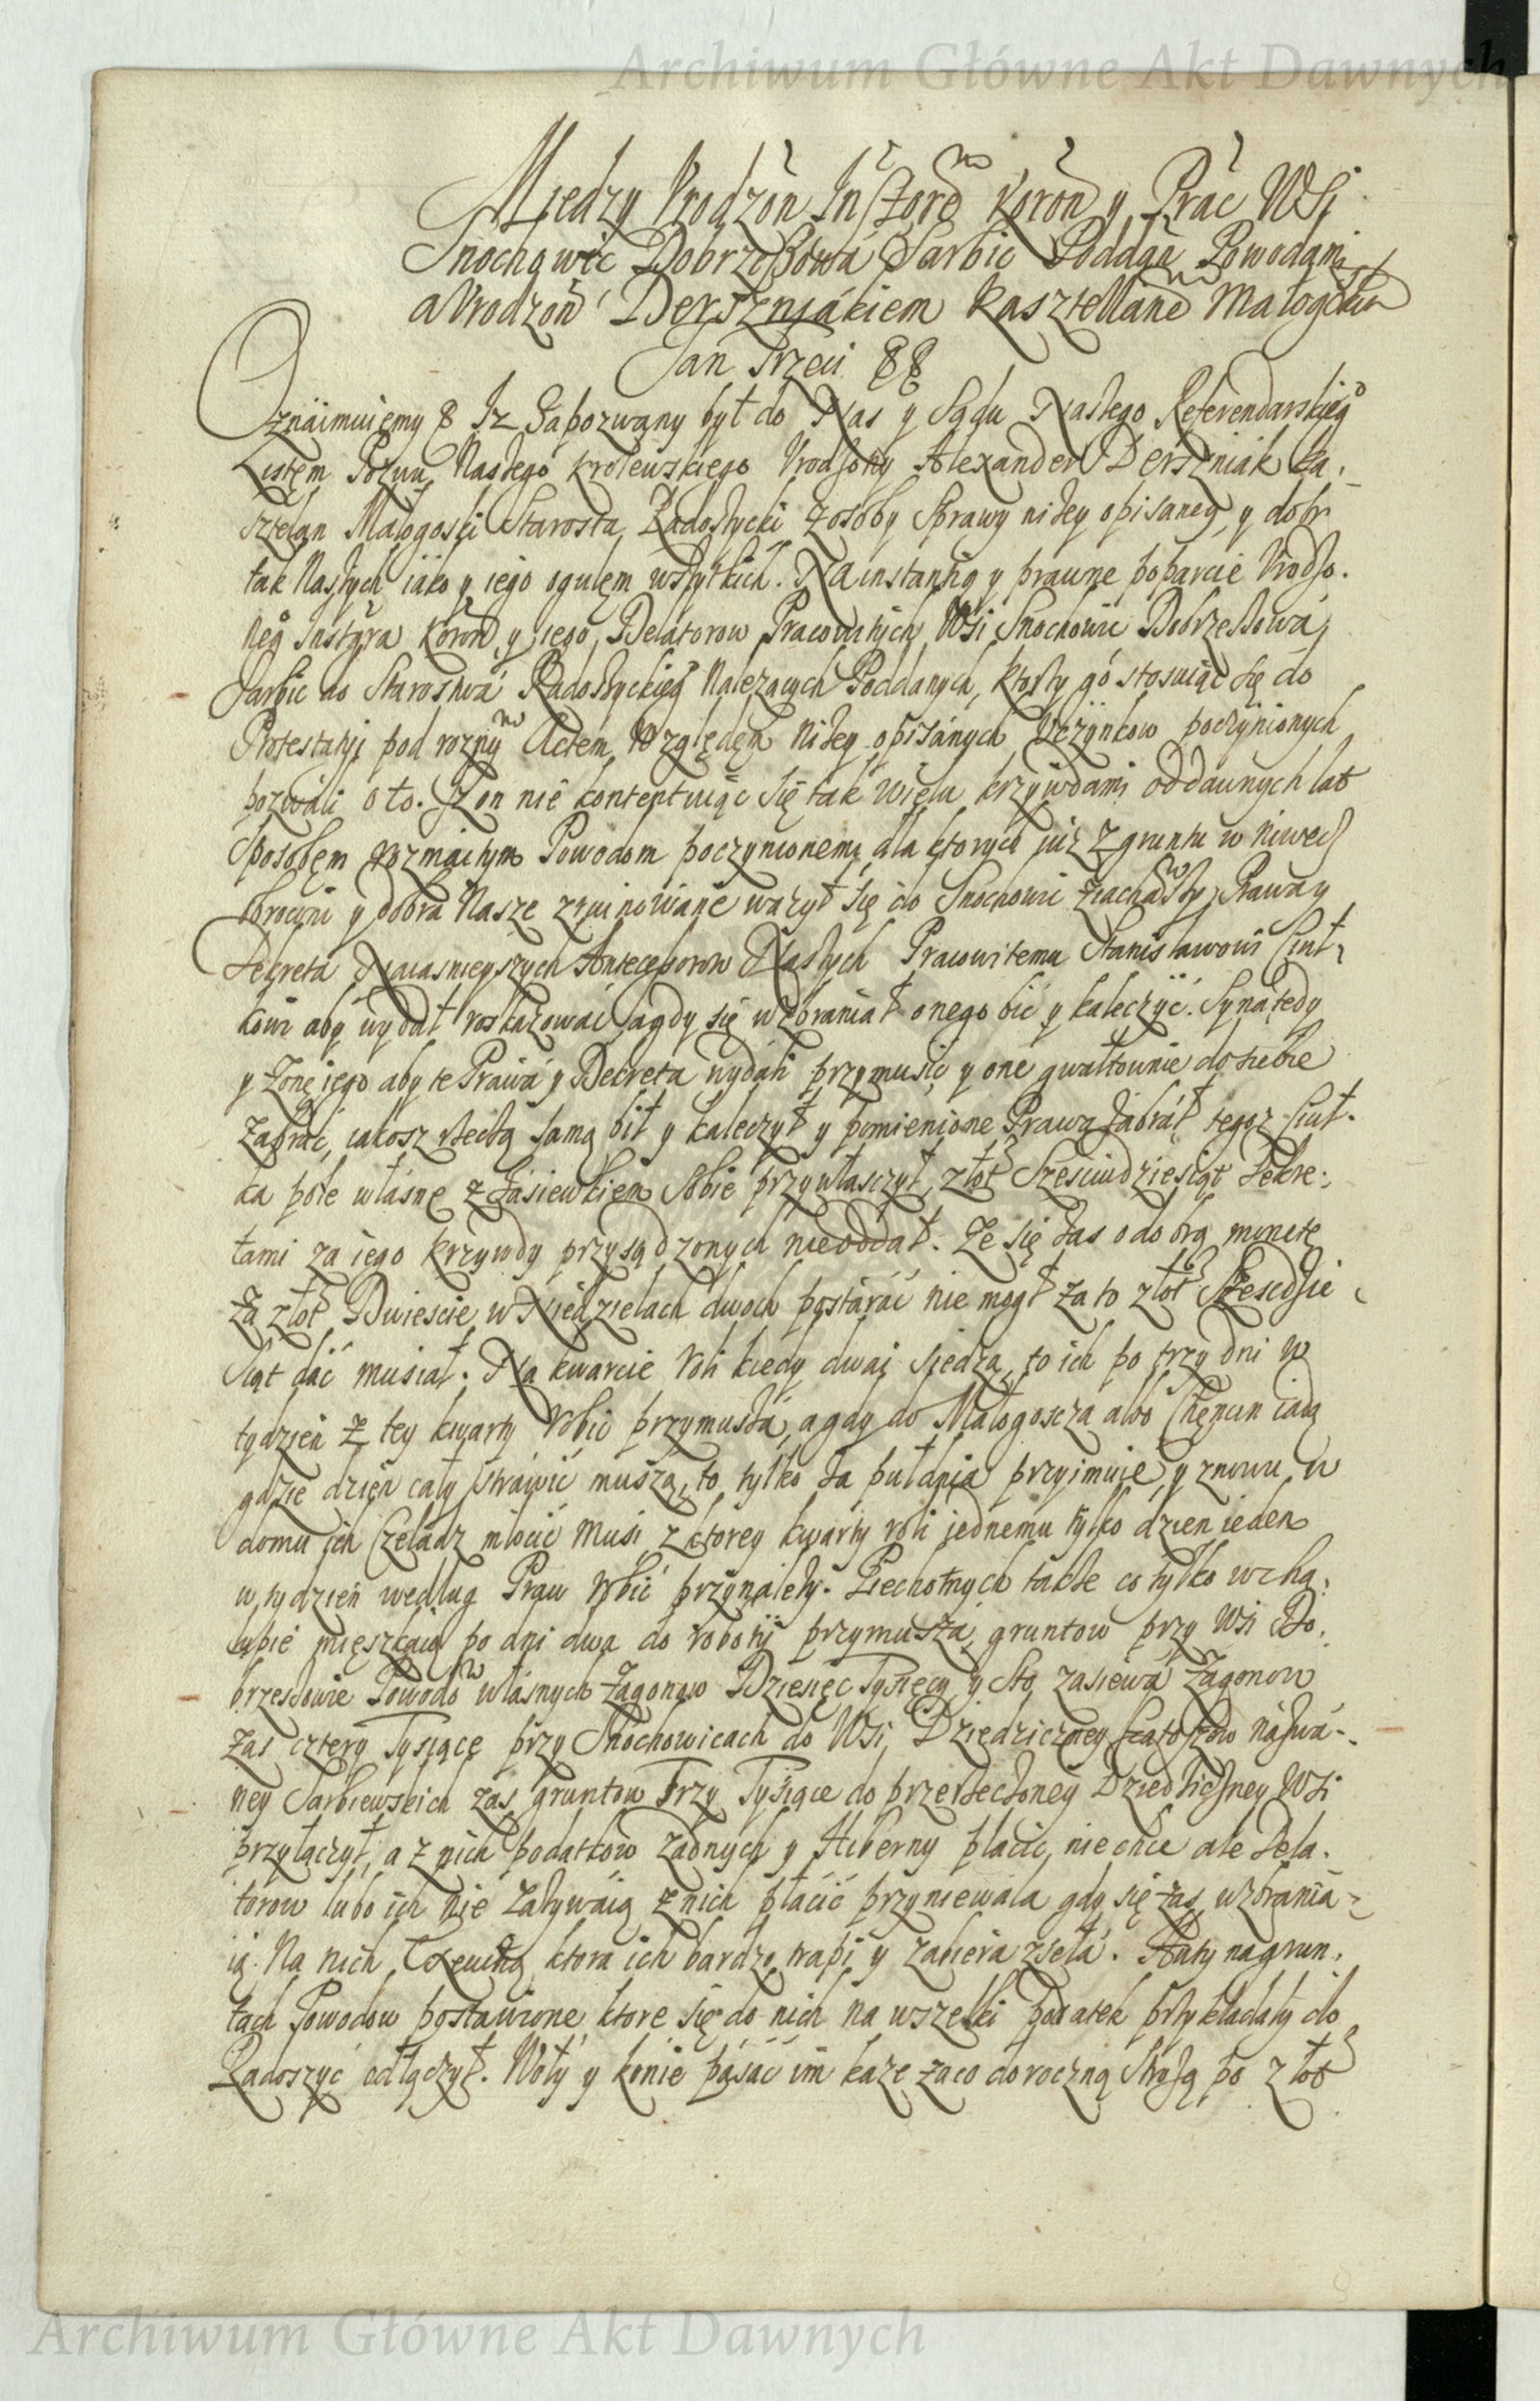 Archiwum Główne Akt Dawnych
Między Vrodzon Instgore Koron y Prac WSi
Snochowic Dobrzeszowa Sarbic Poddan Powodami
a Vrodzon Derszniakiem Kasztellane Małogoskim
Jan Trzeci
Oznaimuiemy Iz Zapozwany był do Nas y Sądu Naszego Referendarskieg
Listem Pozwu Naszego Krolewskiego Vrodzony Alexander Derszniak Ka-
sztelan Małogoski Starosta Radoszycki z osoby Sprawy niżey opisaney y dobr
tak Naszych iako y iego ogułem wszytkich. Na instantią y prawne poparcie Vrodzo-
neg Instygra Koron y iego Delatorow Pracowitych WSi Snochowic Dobrzeszowa
Sarbic do Starostwa Radoszyckieg Nalezących Poddanych, ktorzy go stosuiąc się do
Protestatyi pod roznym Actem Względem Niżey opisanych Uczynkow poczynionych
pozwali o to. Iz on nie kontentuiąc się tak wielu krzywdami od dawnych lat
Sposobem rozmaitym Powodom poczynionemi dla ktorych iuz z gruntu w niwecz
obroceni y dobra Nasze zruinowane ważył się do Snochowic ziachawszy Prawa y
Dekreta Naiasnieyszych Antecessorow Naszych Pracowitemu Stanisławowi Ciuł-
kowi aby wydał roskazować a gdy się wzbraniał onego bić y kaleczyć. Syna tedy
y Zonę iego aby te Prawa y Decreta wydali przymusić y one gwałtownie do siebie
Zabrać, iakosz rzeczą samą bił y kaleczył y pomienione Prawa zabrał tegoz Ciuł-
ka pole własne z zasiewkiem Sobie przywłasczył, złot Szescidziesiąt Dekre-
tami za iego krzywdy przysądzonych nie oddał. Ze się zas o dobrą monetę
Za złot Dwiescie w Niedzielach dwoch postarać nie mogł za to złot Szescdzie-
siąt dać musiał. Na kwarcie Roli kiedy dwai siedzą, to ich po trzy dni w
tydzień z tey kwarty Robić przymusza, a gdy do Małogoscza abo Chęncin iadą
gdzie dzień cały strawić muszą, to tylko za puł dnia przyimuie, y znowu w
domu ich Czeladz młocić musi z ktorey kwarty roli iednemu tylko dzien ieden
w tydzień według Praw robić przynależy. Piechotnych także co tylko w cha-
łupie mięszkaią po dni dwa do roboty przymusza, gruntow przy WSi Do-
brzeszowie Powodow własnych Zagonow Dziesięc Tysięcy y Sto zasiewa Zagonow
zas cztery Tysiące przy Snochowicach do WSi Dziedziczney nazwa-
ney Sarbiewskich zas gruntow Trzy Tysiące do przerzeczoney Dziedziczney WSi
przyłączył, a z nich podatkow zadnych y Hiberny płacić nie chce ale Dela-
torow lubo ich nie zazywaią z nich płacić przyniewala gdy się zas wzbrania-
ią. Na nich ktora ich bardzo trapi y zabiera zseła. Huty na grun-
tach Powodow postawione ktore się do nich na wszelki podatek przykładały do
Radoszyc odłączył. Woły y konie pasać im kaze za co doroczną Strożą po złot
Archiwum Główne Akt Dawnych